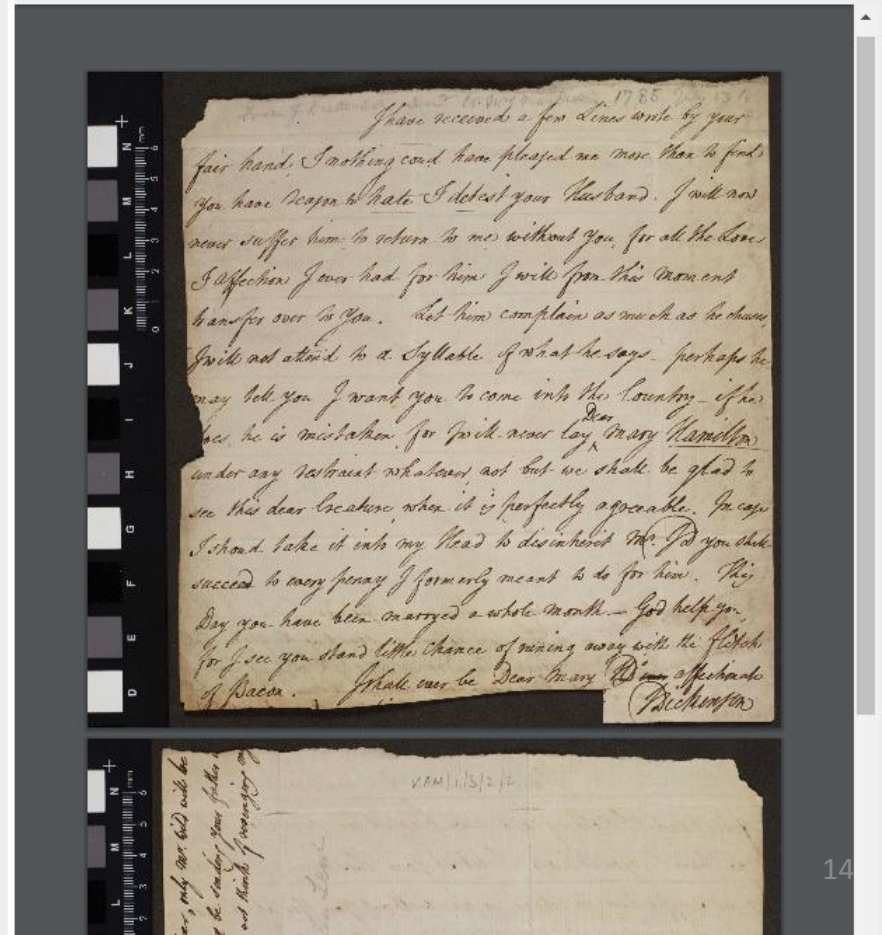 1785 July 13
I have received a few Lines wrote by your
fair hand, & nothing coud have pleased me more than to find
you have reason to hate & detest your Husband. I will now
never suffer him to return to me without you, for all the Love
& affection I ever had for him I will from this moment
transfer over to you. Let him complain as much as he chuses,
I will not attend to a Syllable of what he says - perhaps he
may tell you I want you to come into the Country - if he
does, he is mistaken, for I will never lay Dear Mary Hamilton
under any restraint whatever, not but we shall be glad to
see this dear Creature when it is perfectly agreeable. In case
I should take it into my Head to disinherit Mr. JD you shall
succeed to every penny I formerly meant to do for him. This
Day you have been marryed a whole month - God help you
for I see you stand little chance of runing away with the flitch
of Bacon. I shall ever be Dear Mary affectionate
Dickenson
VAM/1/3/2/2
only Mr. Wild will be
be sending your father
not think of revenging my
N
M
L
K
J
I
H
G
F
E
D
mm
6
5
4
3
2
1
0
N
M
L
mm
6
5
4
3
2
14